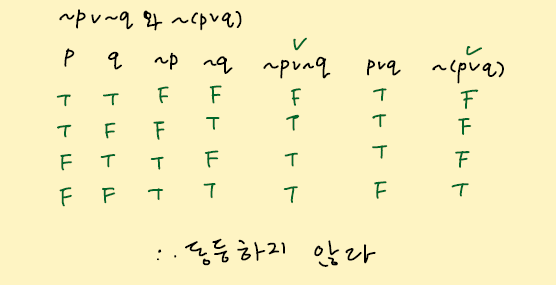 ~p∨~q 와 ~(p∨q)
✓ ✓
p q ~p ~q ~p∨~q p∨q ~(p∨q)
T T F F F T F
T F F T T T F
F T T F T T F
F F T T T F T
∴ 동등하지 않다